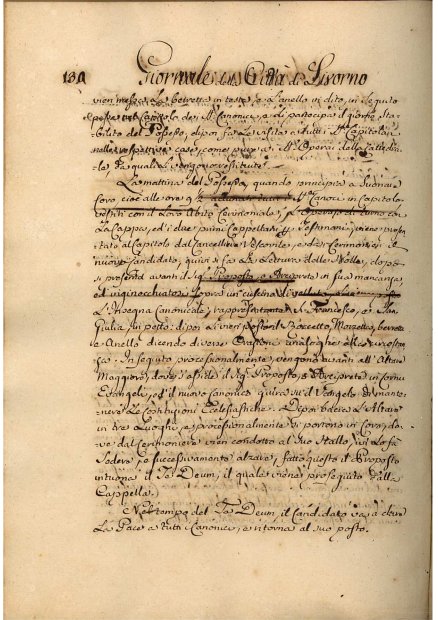 130 Giornale della Città di Livorno
vien messa la beretta in testa, e l'anello in dito, in seguito
Capitolo dei SS.ri Canonici, e si partecipa il giorno sta-
bilito del Possesso, di poi fa le visite a tutti i SS.ri Capitolari
nelle respettive case, come pure a SS.ri Operai della Cattedra-
le
La mattina del Possesso, quando principia a suonare
Coro, cioè alle ore 9½ SS.ri Canonici in Capitolo
vestiti con il Loro Abito Corale, di turno con
La Cappa, ed i due primi Cappellani,
tato al Capitolo dal Cancelliere Vescovile, e dal Cerimoniere il
nuovo Candidato, quivi si fa la Lettura delle Bolle, dopo
si presenta avanti il Sig.re Proposto, o Arciprete in sua mancanza,
ed inginocchiatosi sopra un cuscino di
L'Insegna Canonicale, rappresentante S. Francesco, e San.
Giulia, in petto, di poi li vien Rocchetto, Mozzetta, beretta
e Anello dicendo diverse Orazioni analoghe
In seguito processionalmente, vengono avanti all'Altare
Maggiore, dove assiste il Sig.re Proposto, o Arciprete in Cornu
Evangeli, ed il nuovo Canonico giura su il Vangelo di mante-
nere le Costituzioni Ecclesiastiche. Di poi bacia L'Altare
in tre Luoghi, e processionalmente si portono in Coro, do-
ve dal Cerimoniere vien condotto al suo Stallo, ivi lo fa
Sedere, e successivamente alzare, fatto questo il Proposto
intuona il Te Deum, il quale viene proseguito dalla
Cappella.
Nel tempo del Te Deum, il Candidato va a dare
La Pace a tutti i Canonici, e ritorna al suo posto.